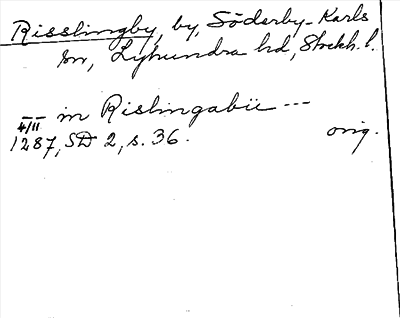 Risslingby, by, Söderby-Karls
sn, Lyhundra hd, Stockh. l.
-- in Rislingabii ---
4/11
1287, SD 2, s. 36. orig.